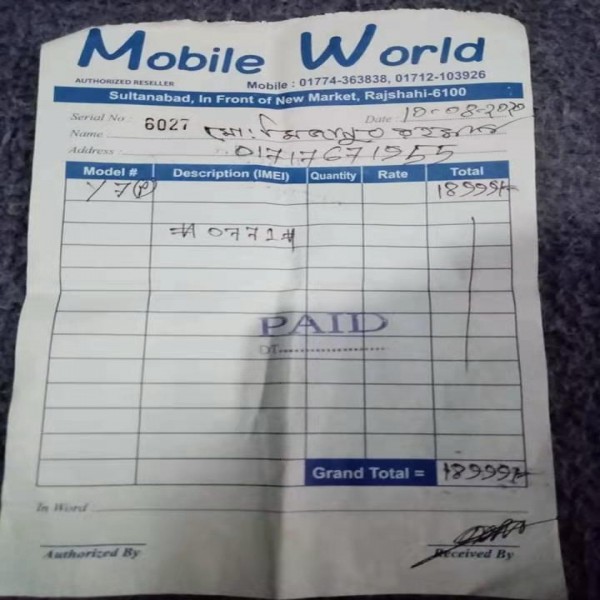 Mobile World
AUTHORIZED RESELLER
Mobile : 01774-363838, 01712-103926
Sultanabad, In Front of New Market, Rajshahi-6100
Serial No : 6027 Date : 10-08-2020
Name : মো:
Address : 01717671955
Model # Description (IMEI) Quantity Rate Total
Y7(P) 18999/-
#07721#
PAID
DT
Grand Total = 18999/-
In Word
Authorized By Received By